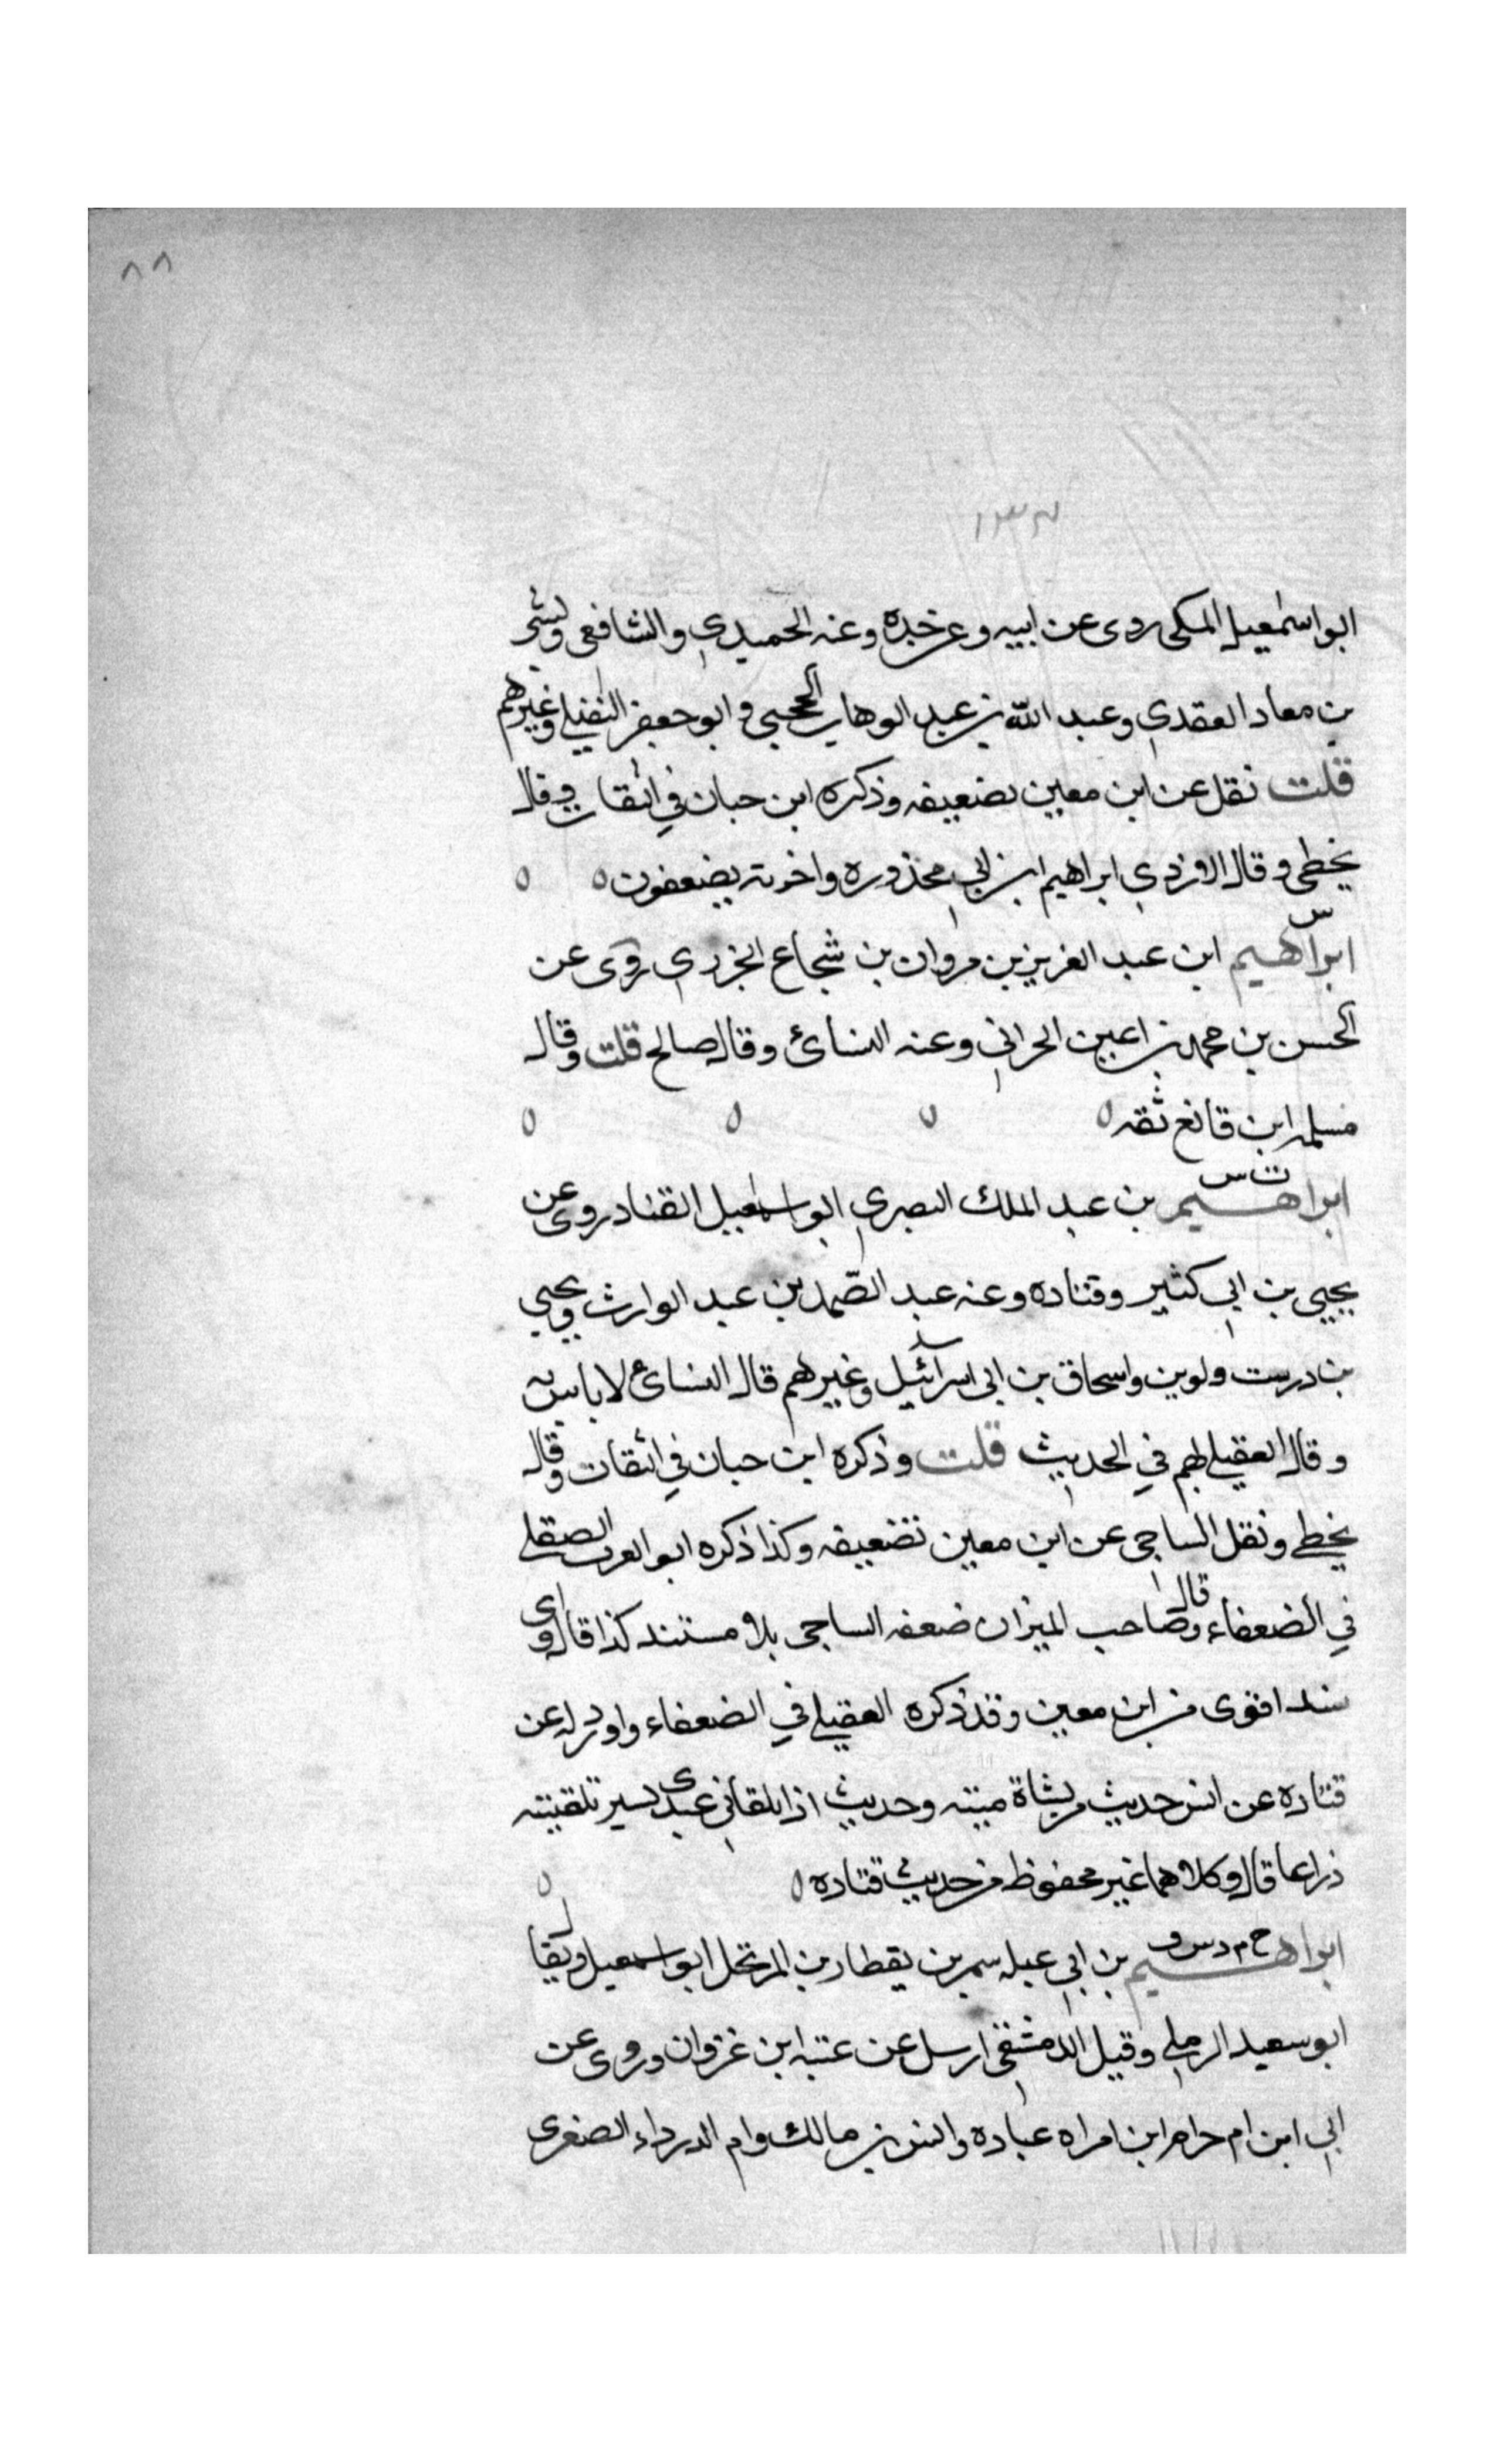 ٨٨
ابو اسمعيل المكى روى عن ابيه وعن جده وعنه الحميدي والشافعى وبشر
بن معاد العقدي وعبد الله بن عبد الوهاب الحجبى وابو جعفر النفيلي وغيرهم
قلت نقل عن ابن معين تضعيفه وذكره ابن حبان في الثقات وقال
يخطى وقال الازدي ابراهيم ابن ابي محذوره واخوته يضعفون
س
ابراهيم ابن عبد العزيز بن مروان بن شجاع الجزري روى عن
الحسن بن محمد بن اعين الحراني وعنه النسائ وقال صالح قلت وقال
مسلمه ابن قانع ثقه
ت س
ابراهيم بن عبد الملك البصري ابو اسمعيل القناد روى عن
يحيى بن ابي كثير وقتاده وعنه عبد الصمد بن عبد الوارث ويحيى
بن درست ولوين واسحاق بن ابى اسرآئيل وغيرهم قال النسائ لا باس به
وقال العقيلي يهم في الحديث قلت وذكره ابن حبان في الثقات وقال
يخطى ونقل الساجى عن ابن معين تضعيفه وكذا ذكره ابو العرب الصقلي
في الضعفاء وقال صاحب الميزان ضعفه الساجى بلا مستند كذا قال واى
سند اقوى من ابن معين وقد ذكره العقيلي في الضعفاء واورد له عن
قتاده عن انس حديث مر بشاة ميته وحديث اذا تلقاني عبدى بسير تلقيته
ذراعا قال وكلاهما غير محفوظ من حديث قتاده
خ م د س ق
ابراهيم بن ابي عبله سمر بن يقطان بن المرتحل ابو اسمعيل ويقال
ابو سعيد الرملي وقيل الدمشقي ارسل عن عتبه ابن غزوان وروى عن
ابي ابن ام حرام ابن امراه عباده وانس بن مالك وام الدرداء الصغرى